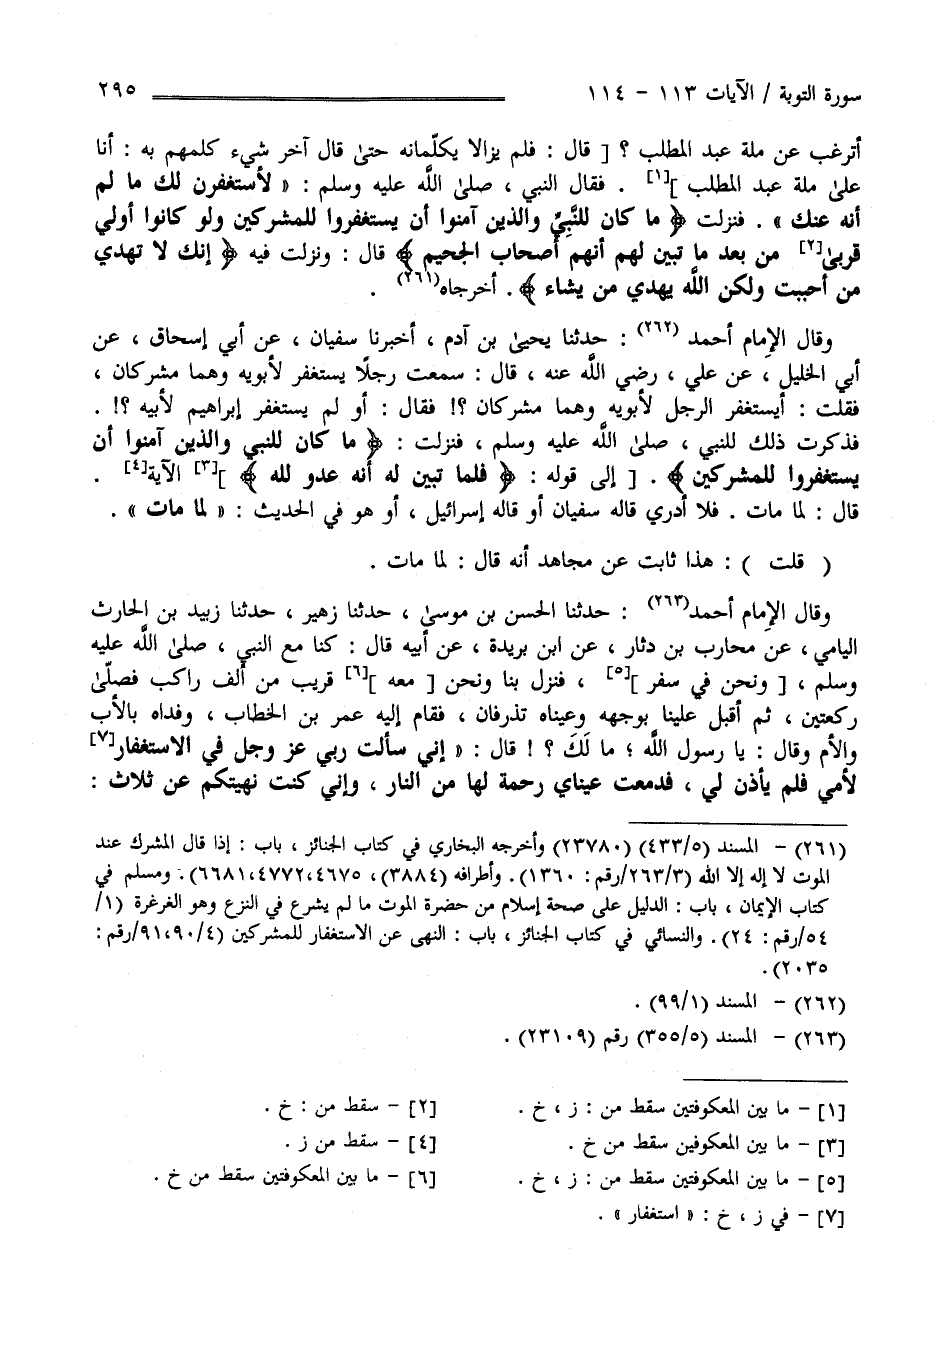 سورة التوبة / الآيات ١١٣ - ١١٤ ٢٩٥
أترغب عن ملة عبد المطلب ؟ [ قال : فلم يزالا يكلّمانه حتىٰ قال آخر شيء كلمهم به : أنا
علىٰ ملة عبد المطلب ][١] . فقال النبي ، صلىٰ اللَّه عليه وسلم : « لأستغفرن لك ما لم
أنه عنك » . فنزلت ﴿ ما كان للنَّبِيِّ والذين آمنوا أن يستغفروا للمشركين ولو كانوا أولي
قربىٰ[٢] من بعد ما تبين لهم أنهم أصحاب الجحيم ﴾ قال : ونزلت فيه ﴿ إنك لا تهدي
من أحببت ولكن اللَّه يهدي من يشاء ﴾ . أخرجاه(٢٦١) .
وقال الإمام أحمد (٢٦٢) : حدثنا يحيىٰ بن آدم ، أخبرنا سفيان ، عن أبي إسحاق ، عن
أبي الخليل ، عن علي ، رضي اللَّه عنه ، قال : سمعت رجلًا يستغفر لأبويه وهما مشركان ،
فقلت : أيستغفر الرجل لأبويه وهما مشركان ؟! فقال : أو لم يستغفر إبراهيم لأبيه ؟! .
فذكرت ذلك للنبي ، صلىٰ اللَّه عليه وسلم ، فنزلت : ﴿ ما كان للنبي والذين آمنوا أن
يستغفروا للمشركين ﴾ . [ إلى قوله : ﴿ فلما تبين له أنه عدو لله ﴾ ][٣] الآية[٤] .
قال : لما مات . فلا أدري قاله سفيان أو قاله إسرائيل ، أو هو في الحديث : « لما مات » .
( قلت ) : هذا ثابت عن مجاهد أنه قال : لما مات .
وقال الإمام أحمد(٢٦٣) : حدثنا الحسن بن موسىٰ ، حدثنا زهير ، حدثنا زبيد بن الحارث
اليامي ، عن محارب بن دثار ، عن ابن بريدة ، عن أبيه قال : كنا مع النبي ، صلىٰ اللَّه عليه
وسلم ، [ ونحن في سفر ][٥] ، فنزل بنا ونحن [ معه ][٦] قريب من ألف راكب فصلّىٰ
ركعتين ، ثم أقبل علينا بوجهه وعيناه تذرفان ، فقام إليه عمر بن الخطاب ، وفداه بالأب
والأم وقال : يا رسول اللَّه ؛ ما لَكَ ؟ ! قال : « إني سألت ربي عز وجل في الاستغفار[٧]
لأمي فلم يأذن لي ، فدمعت عيناي رحمة لها من النار ، وإني كنت نهيتكم عن ثلاث :
(٢٦١) - المسند (٤٣٣/٥) (٢٣٧٨٠) وأخرجه البخاري في كتاب الجنائز ، باب : إذا قال المشرك عند
الموت لا إله إلا الله (٢٦٣/٣/رقم: ١٣٦٠). وأطرافه (٣٨٨٤)، ٦٦٨١،٤٧٧٢،٤٦٧٥). ومسلم في
كتاب الإيمان ، باب : الدليل على صحة إسلام من حضرة الموت ما لم يشرع في النزع وهو الغرغرة (١/
٥٤/رقم: ٢٤). والنسائي في كتاب الجنائز ، باب : النهى عن الاستغفار للمشركين (٩١،٩٠/٤/رقم:
٢٠٣٥).
(٢٦٢) - المسند (٩٩/١) .
(٢٦٣) - المسند (٣٥٥/٥) رقم (٢٣١٠٩) .
[١] - ما بين المعكوفتين سقط من : ز ، خ . [٢] - سقط من : خ .
[٣] - ما بين المعكوفين سقط من خ . [٤] - سقط من ز .
[٥] - ما بين المعكوفتين سقط من : ز ، خ . [٦] - ما بين المعكوفتين سقط من خ .
[٧] - في ز ، خ : « استغفار » .